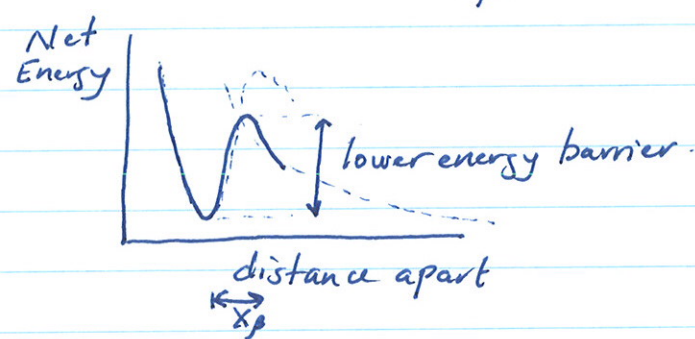 Net
Energy
lower energy barrier.
distance apart
xβ